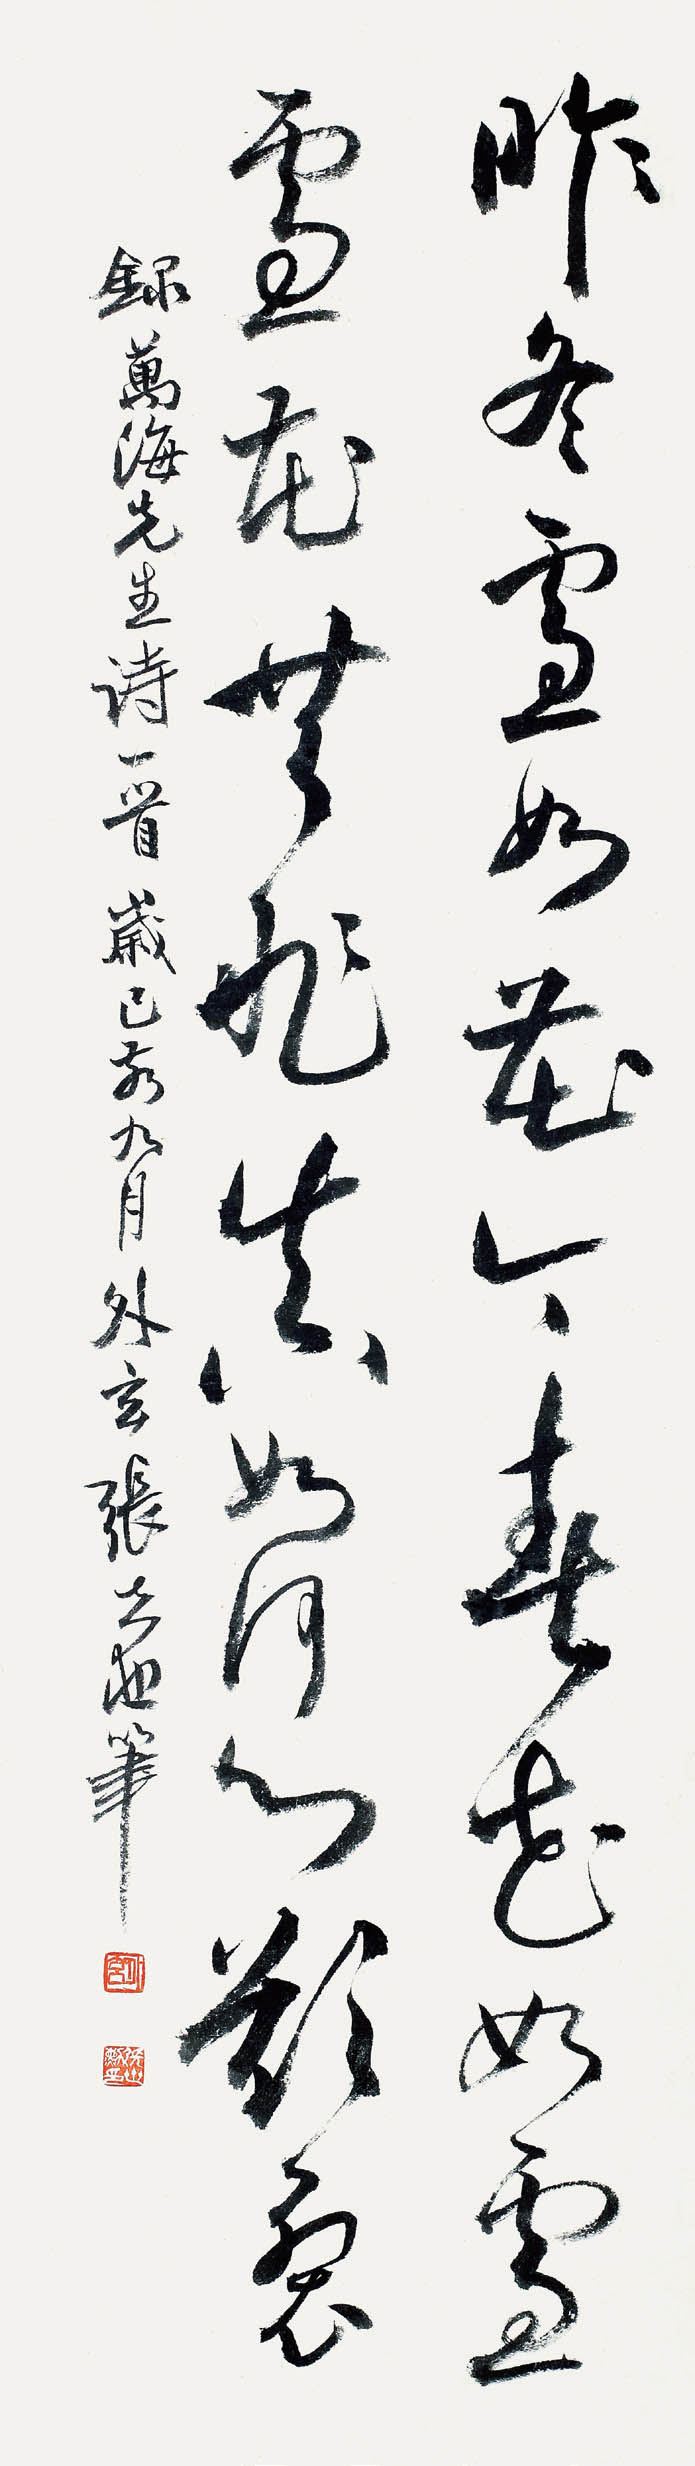 昨冬雪如花今春花如雪
雪花共非真如何心欲裂
錄萬海先生詩一首 歲己亥九月 外玄 張 筆